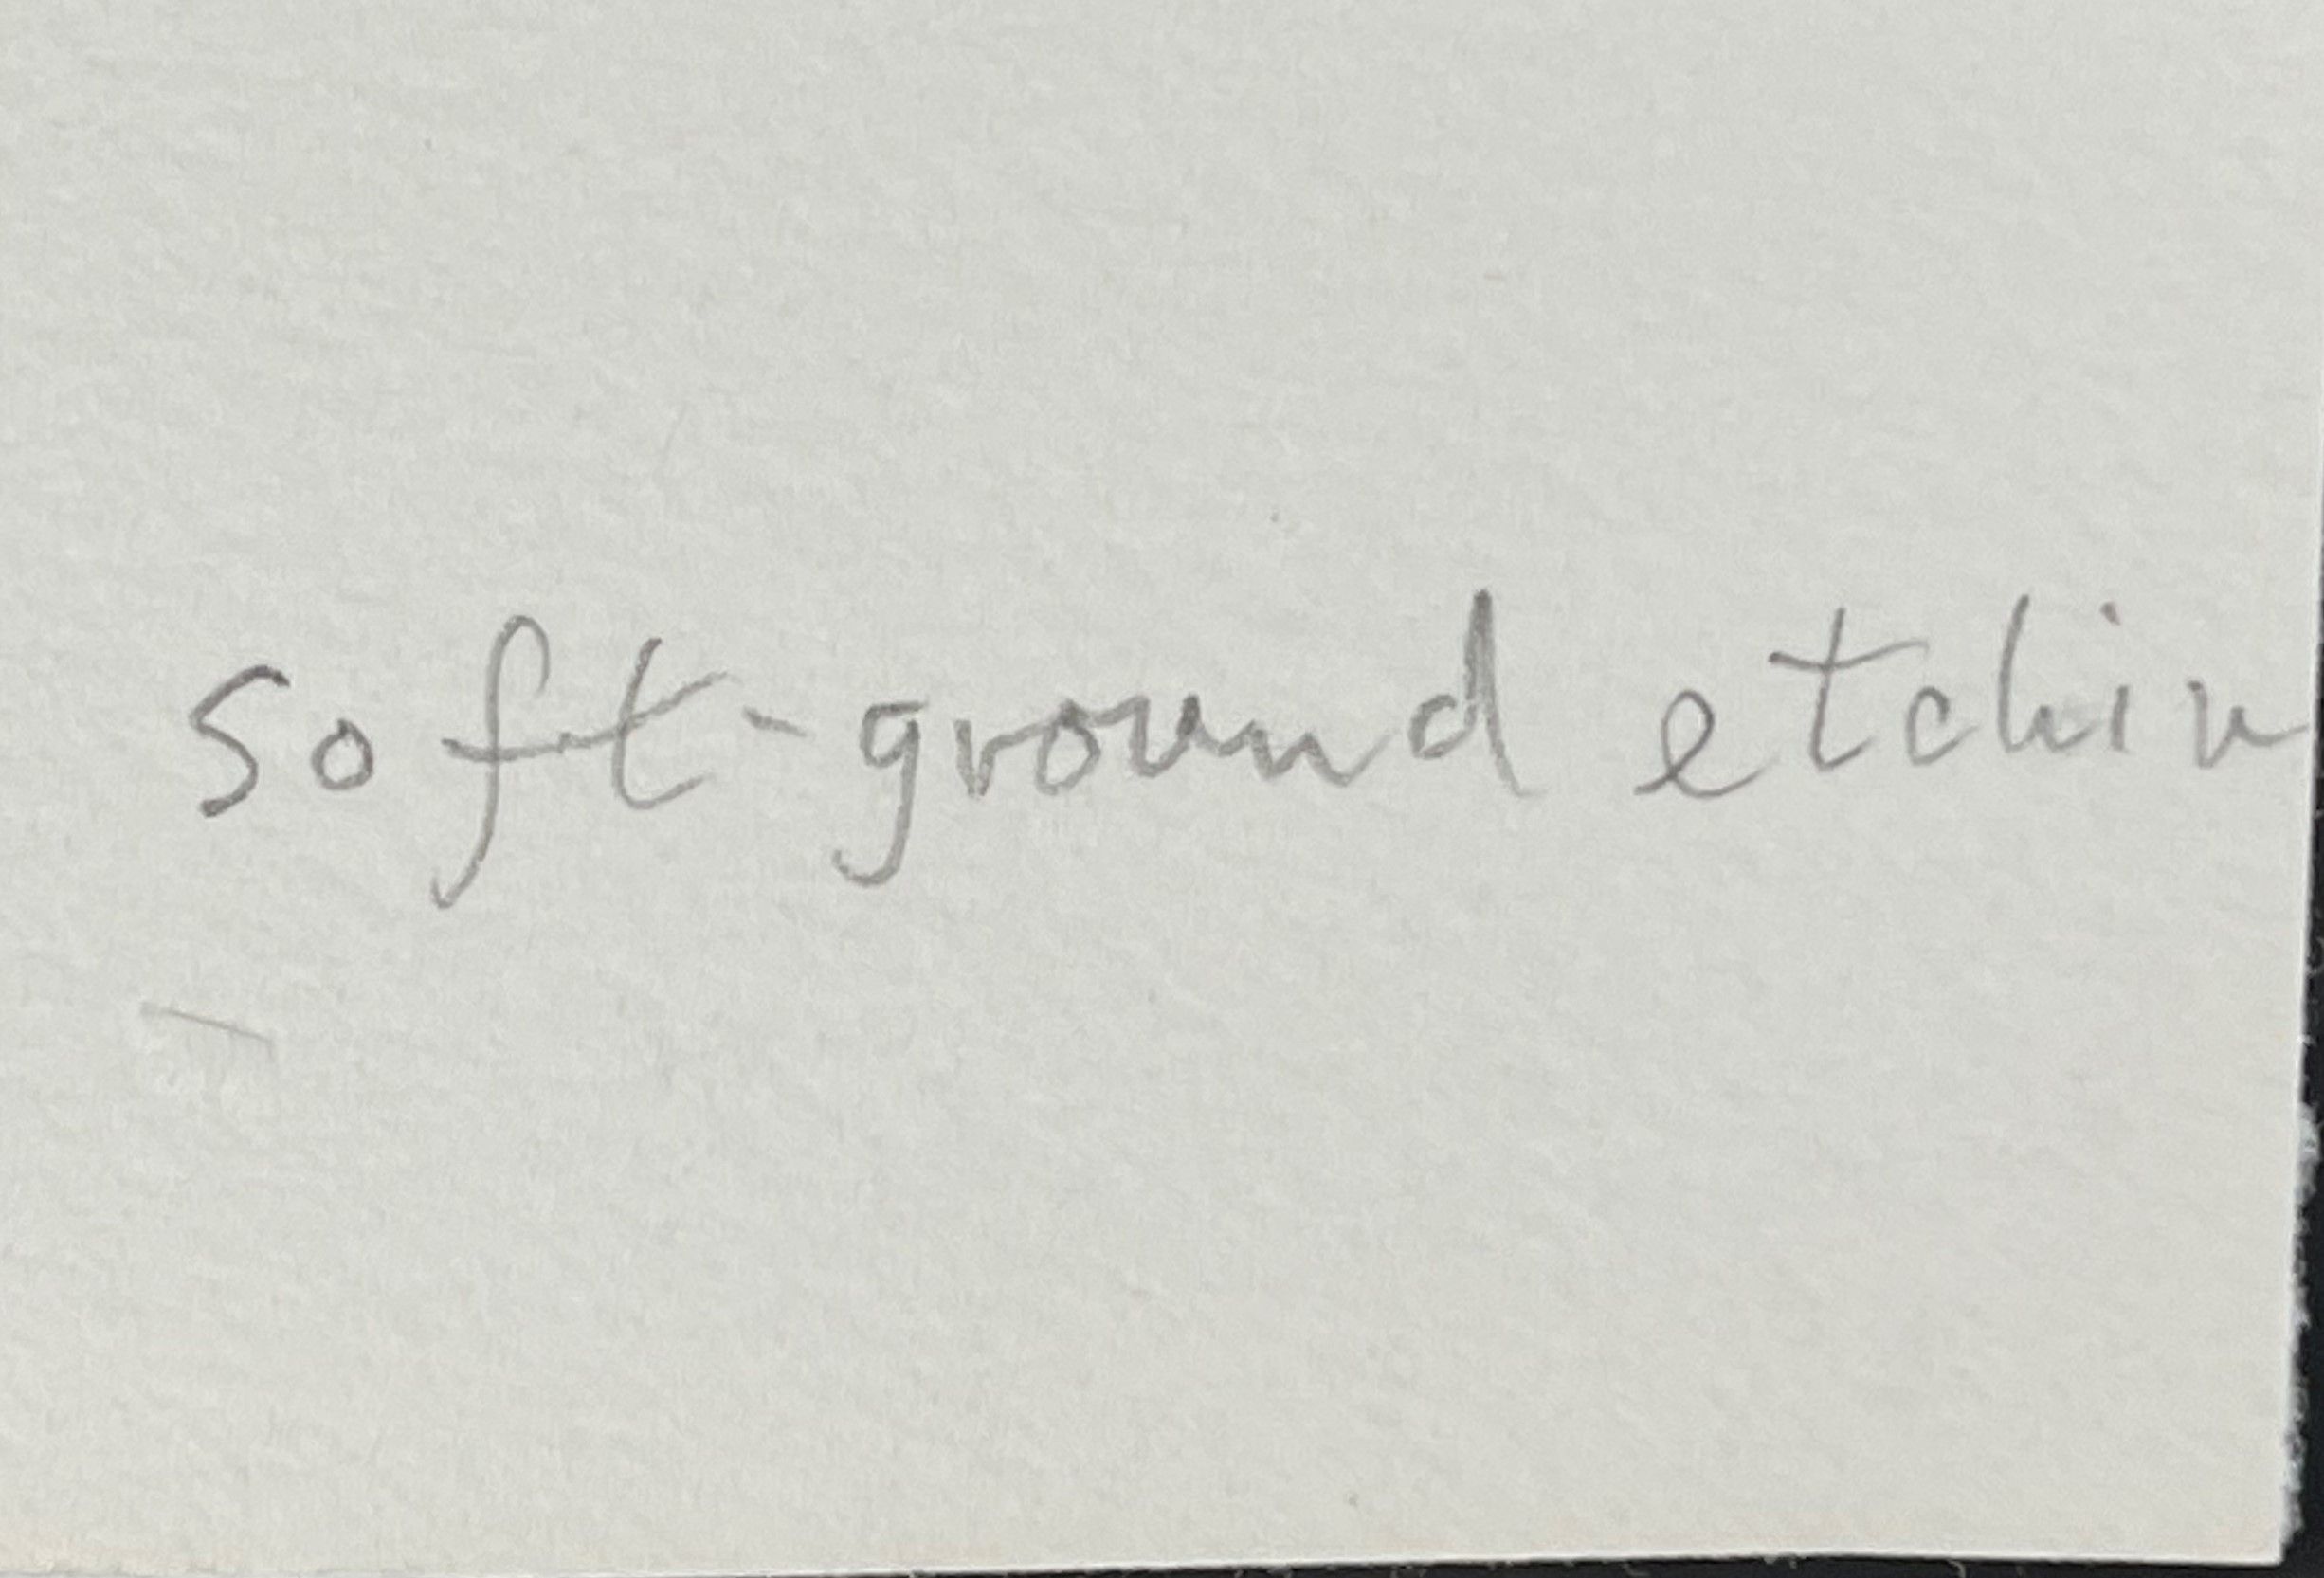 soft-ground etchin